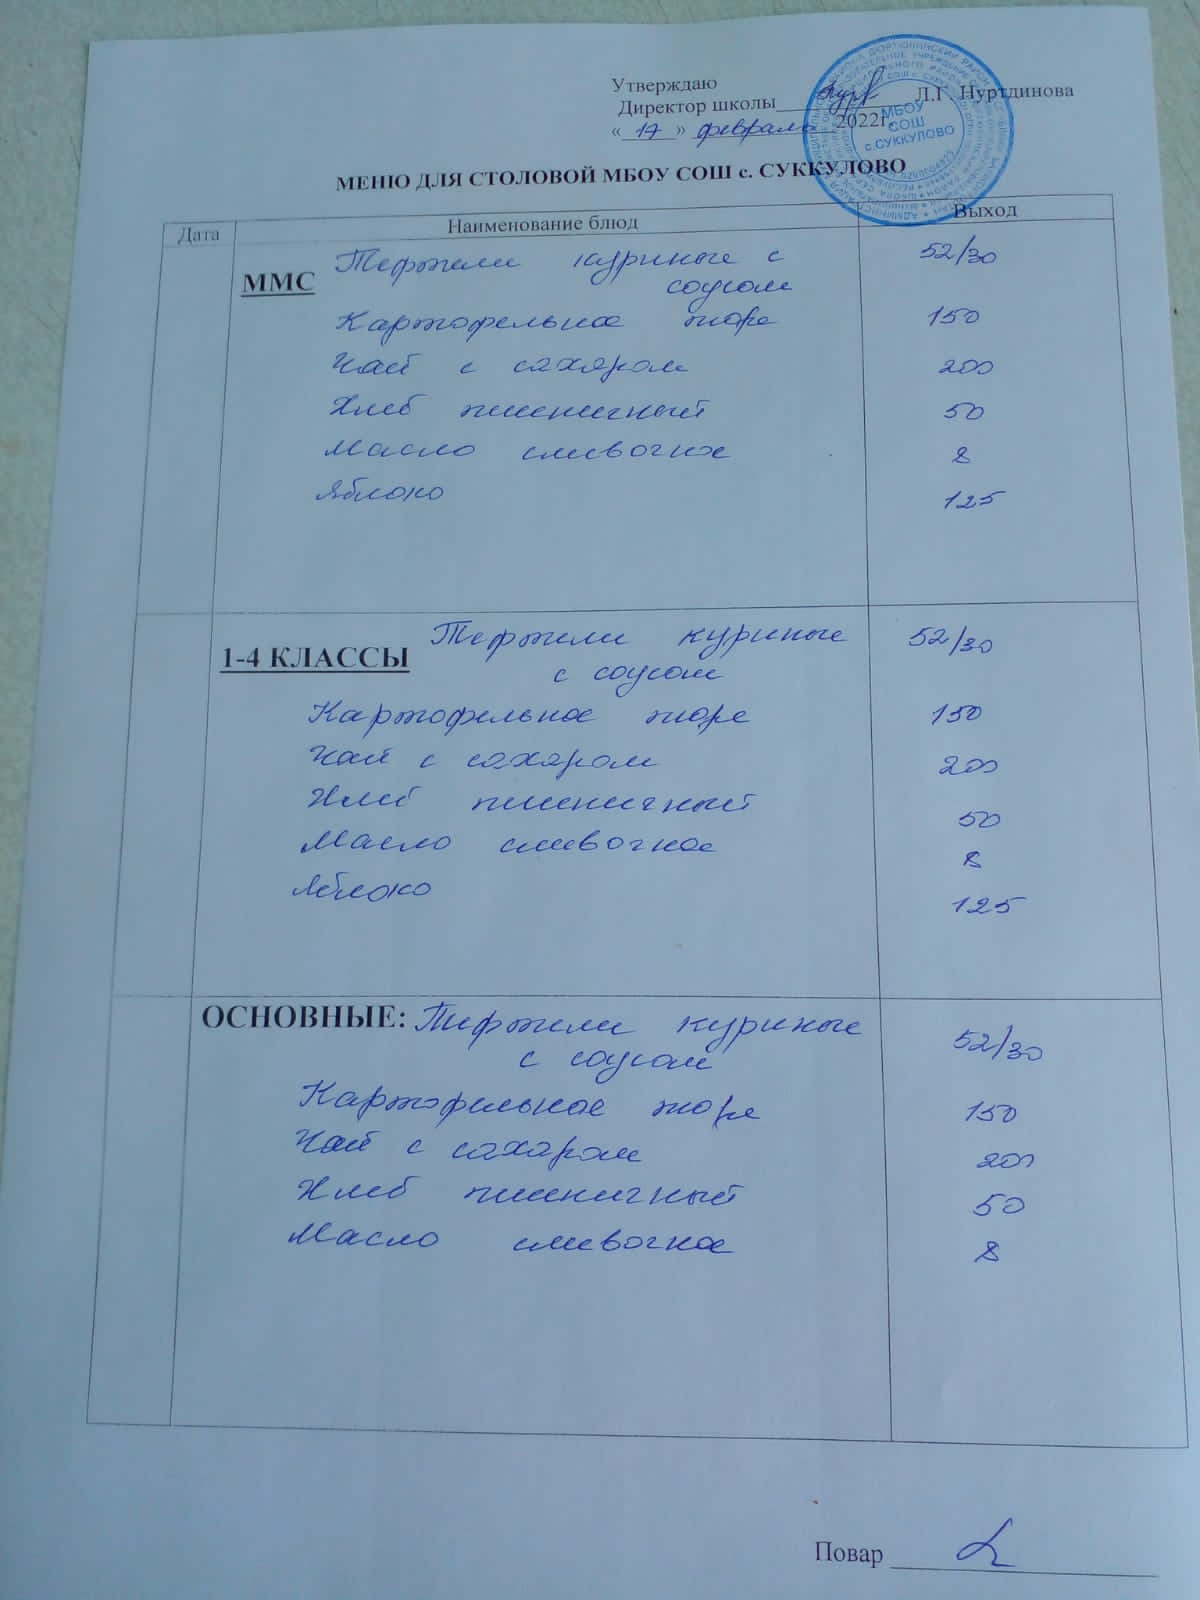 Утверждаю
Директор школы Л.Г. Нуртдинова
« 17 » февраля 2022г.
МБОУ
СОШ
с.СУККУЛОВО
МЕНЮ ДЛЯ СТОЛОВОЙ МБОУ СОШ с. СУККУЛОВО
Дата Наименование блюд Выход
ММС Тефтели куриные с 52/30
соусом
Картофельное пюре 150
Чай с сахаром 200
Хлеб пшеничный 50
Масло сливочное 8
Яблоко 125
1-4 КЛАССЫ Тефтели куриные 52/30
с соусом
Картофельное пюре 150
Чай с сахаром 200
Хлеб пшеничный 50
Масло сливочное 8
Яблоко 125
ОСНОВНЫЕ: Тефтели куриные 52/30
с соусом
Картофельное пюре 150
Чай с сахаром 200
Хлеб пшеничный 50
Масло сливочное 8
Повар